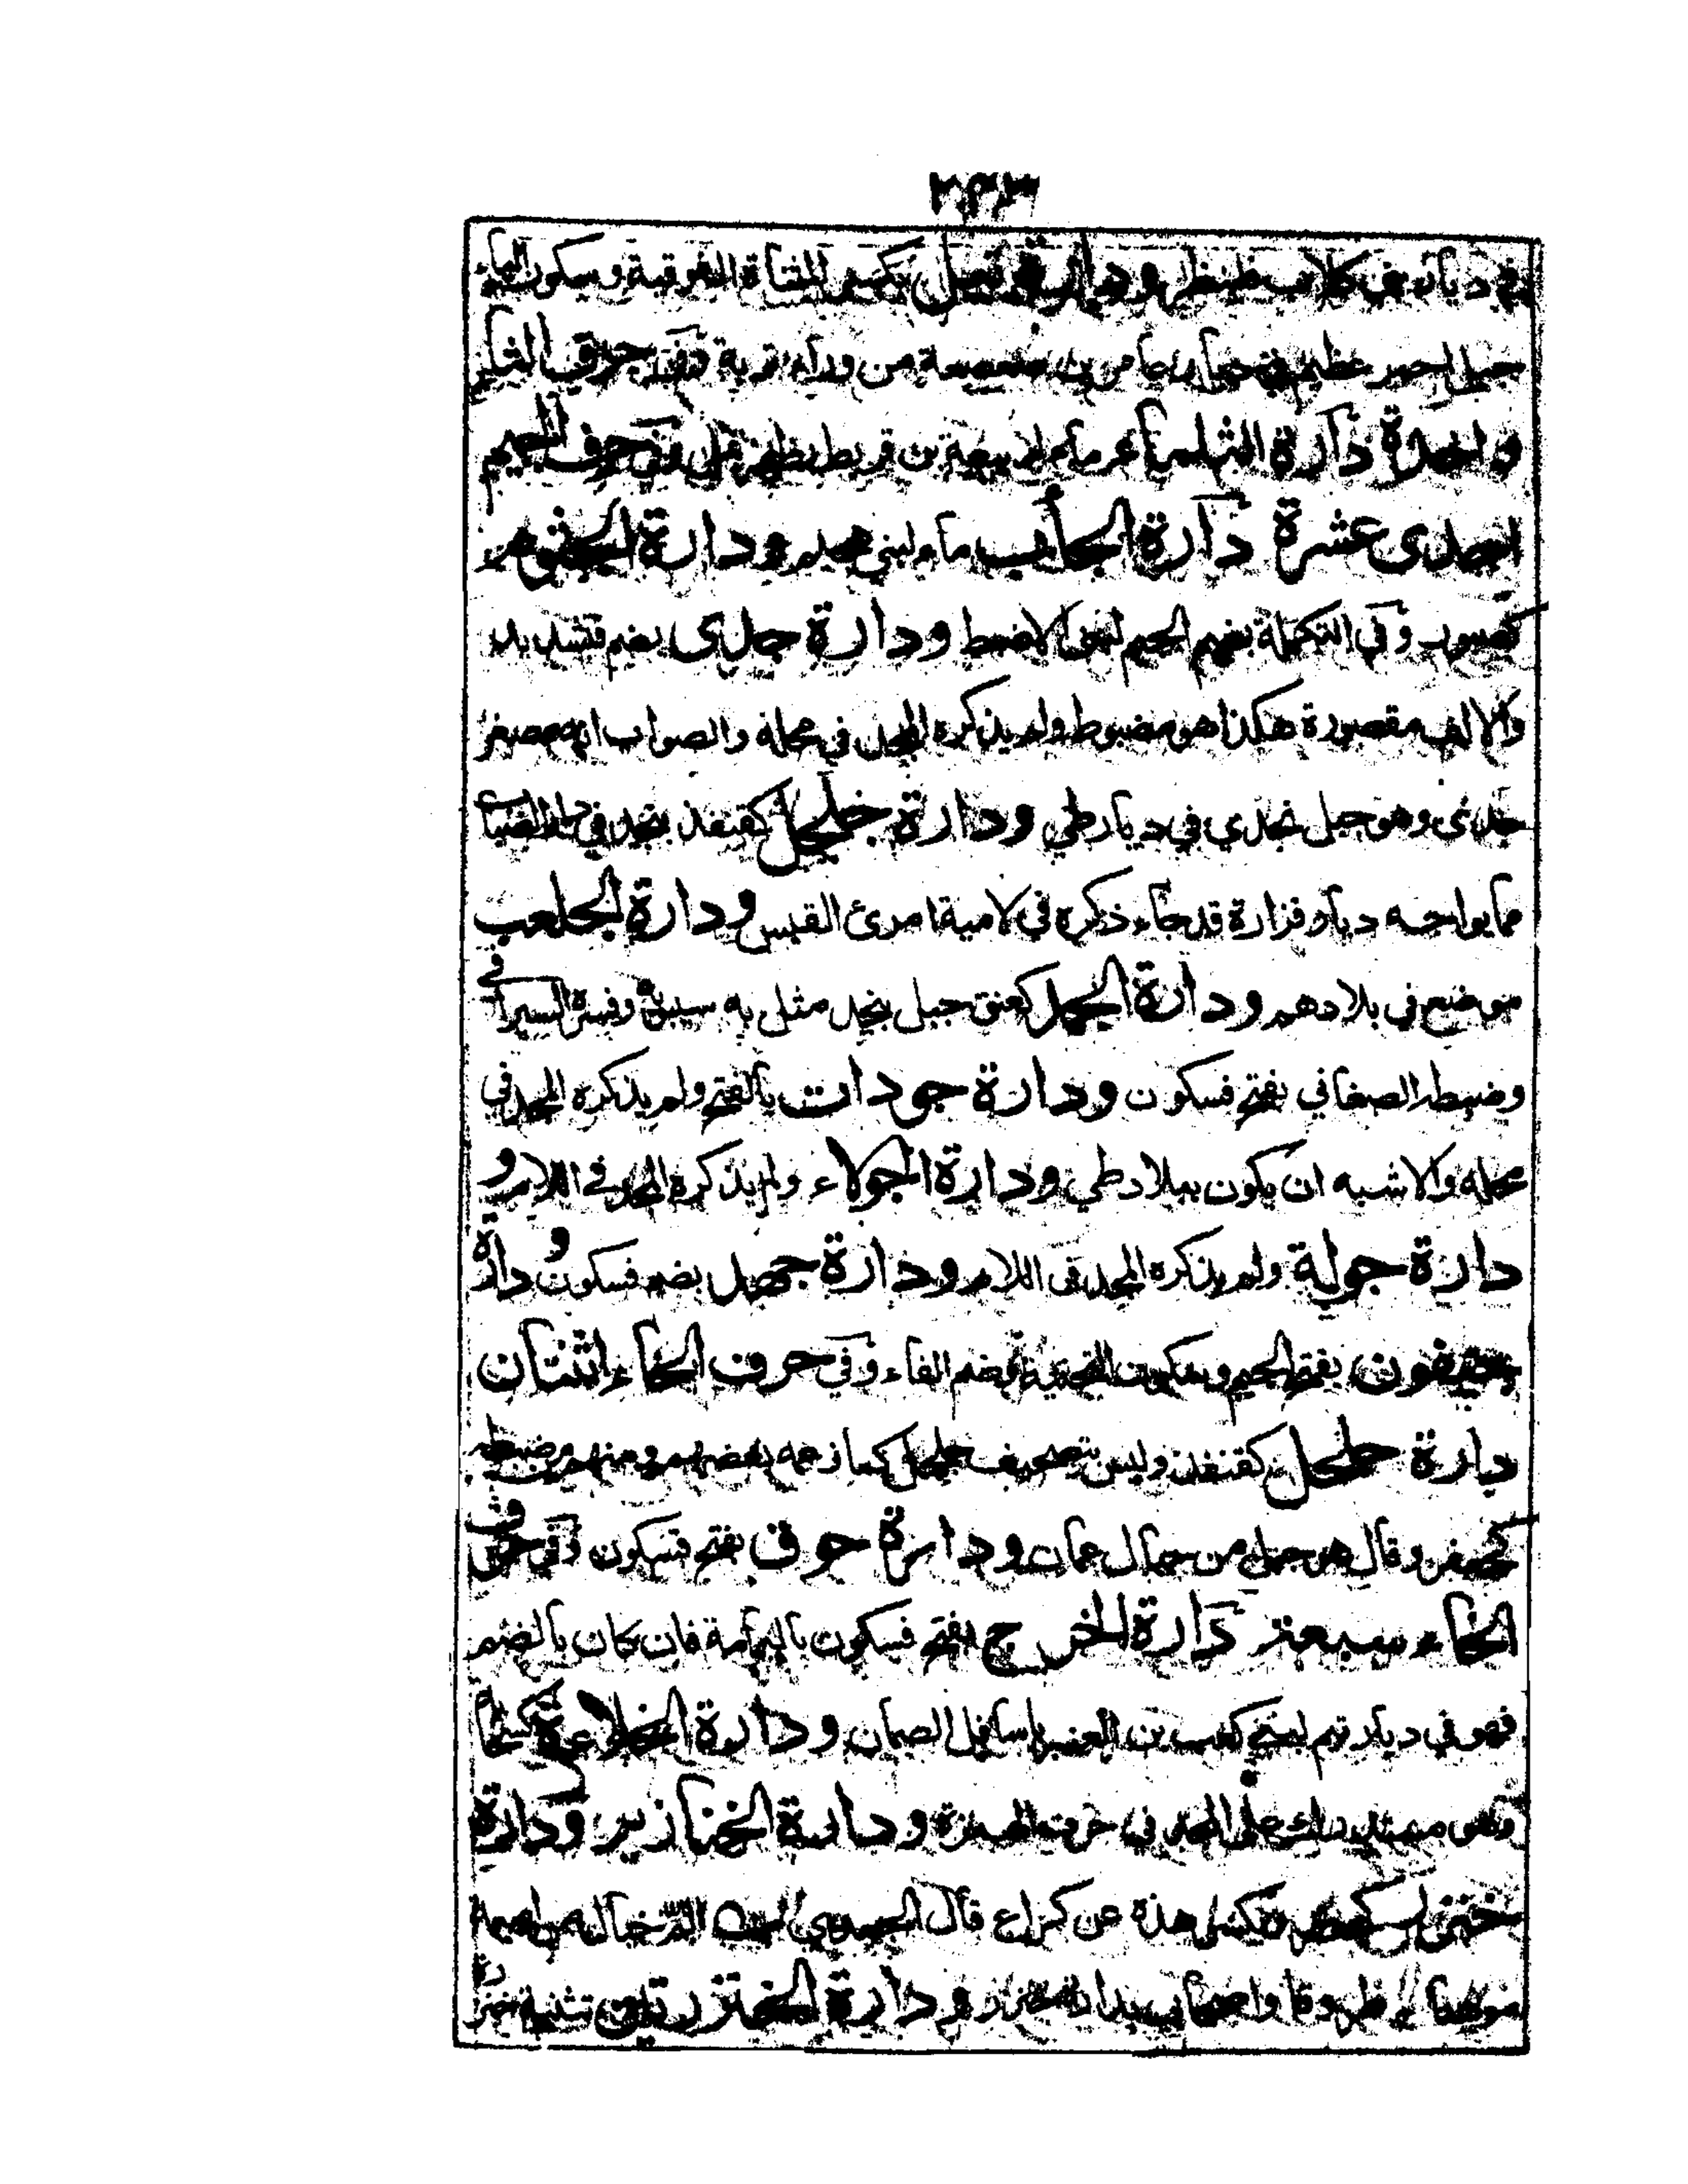 في ديار بني كلاب ودارة بكسر المثناة الفوقية وسكون الهاء
جبل احمر عظيم في ديار عامر بن صعصعة من وراء تربة وفي حرف الثاء
واحدة دارة الثلماء ماء لربيعة بن قريط بظهر نملى وفي حرف الجيم
احدى عشرة دارة الجأب ماء لبني هجيم ودارة الجثوم
كصبور وفي التكملة بضم الجيم ودارة جدى بضم فتشديد
والالف مقصورة هكذا هو مضبوط ولم يذكره المجد في محله والصواب انه مصغر
جدي وهو جبل نجدي في ديار طي ودارة جلجل كقنفذ بنجد في دار الضباب
مما يواجه ديار فزارة قد جاء ذكره في لامية امرئ القيس ودارة الجلعب
موضع في بلادهم ودارة الجمد كعنق جبل بنجد مثل به سيبويه وفسره السيرافي
وضبطه الصغاني بفتح فسكون ودارة جودات بالفتح ولم يذكره المجد في
محله والاشبه ان يكون ببلاد طي ودارة الجولاء ولم يذكره المجد في اللام و
دارة جولة ولم يذكره المجد في اللام ودارة جهد بضم فسكون ودارة
جيفون بفتح الجيم وسكون التحتية وضم الفاء وفي حرف الحاء اثنتان
دارة حلحل كقنفذ وليس بتصحيف جلجل كما زعمه بعضهم ومنهم من ضبطه
كجعفر وقال هو جبل من جبال عمان ودارة حوق بفتح فسكون وفي حرف
الخاء سبعة دارة الخرج بفتح فسكون باليمامة فان كان بالضم
فهو في ديار تيم لبني كعب بن العنبر باسافل الصمان ودارة الخلاءة كسحابة
وهو مستدرك على المجد في حرف الهمزة ودارة الخنازير ودارة
خنزر كجعفر وتكسر هذه عن كراع قال الجعدي الم خيال من اميمة
موهنا طروقا واصحابي بدارة خنزر ودارة الخنزرتين تثنية خنزرة